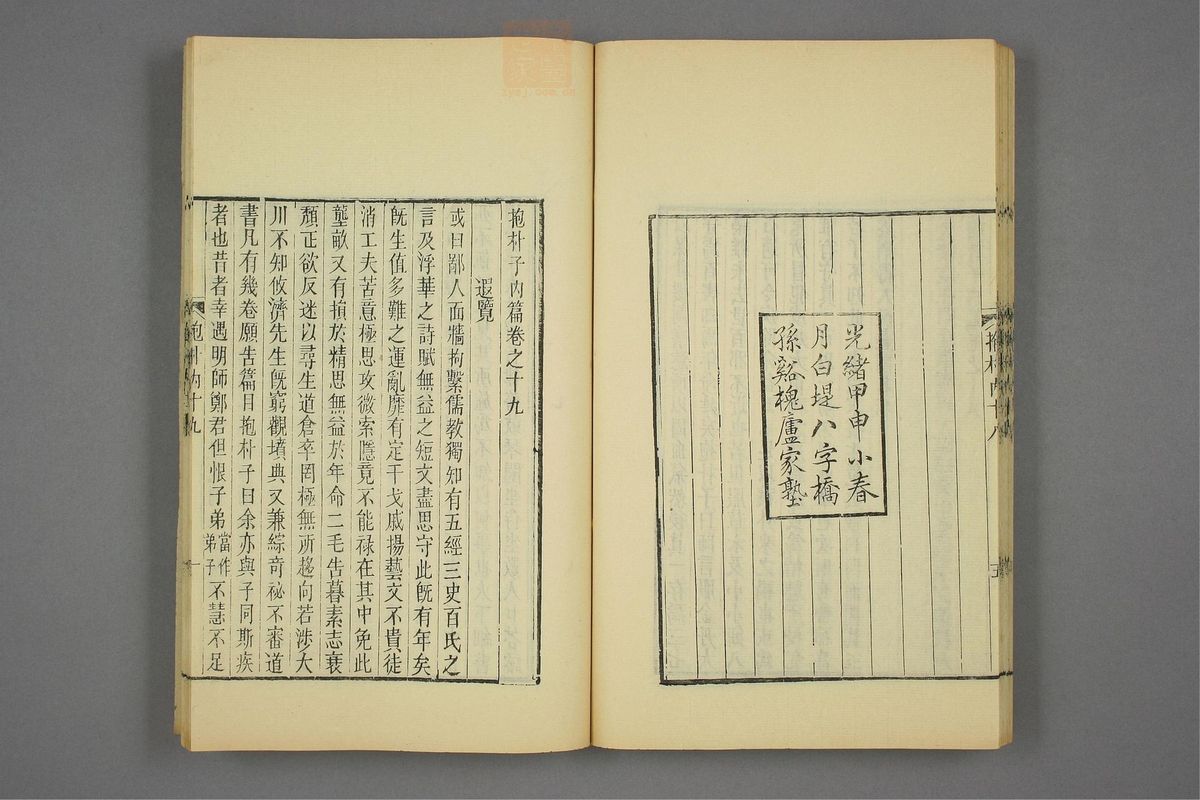 光緒甲申小春
月白堤八字橋
孫谿槐廬家塾
抱朴內十八
五
抱朴子內篇卷之十九
遐覽
或曰鄙人面牆拘繫儒教獨知有五經三史百氏之
言及浮華之詩賦無益之短文盡思守此旣有年矣
旣生值多難之運亂靡有定干戈戚揚藝文不貴徒
消工夫苦意極思攻微索隱竟不能祿在其中免此
壟畝又有損於精思無益於年命二毛告暮素志衰
頹正欲反迷以尋生道倉卒罔極無所趨向若涉大
川不知攸濟先生旣窮觀墳典又兼綜奇祕不審道
書凡有幾卷願告篇目抱朴子曰余亦與子同斯疾
者也昔者幸遇明師鄭君但恨子弟當作弟子不慧不足
抱朴內十九
一